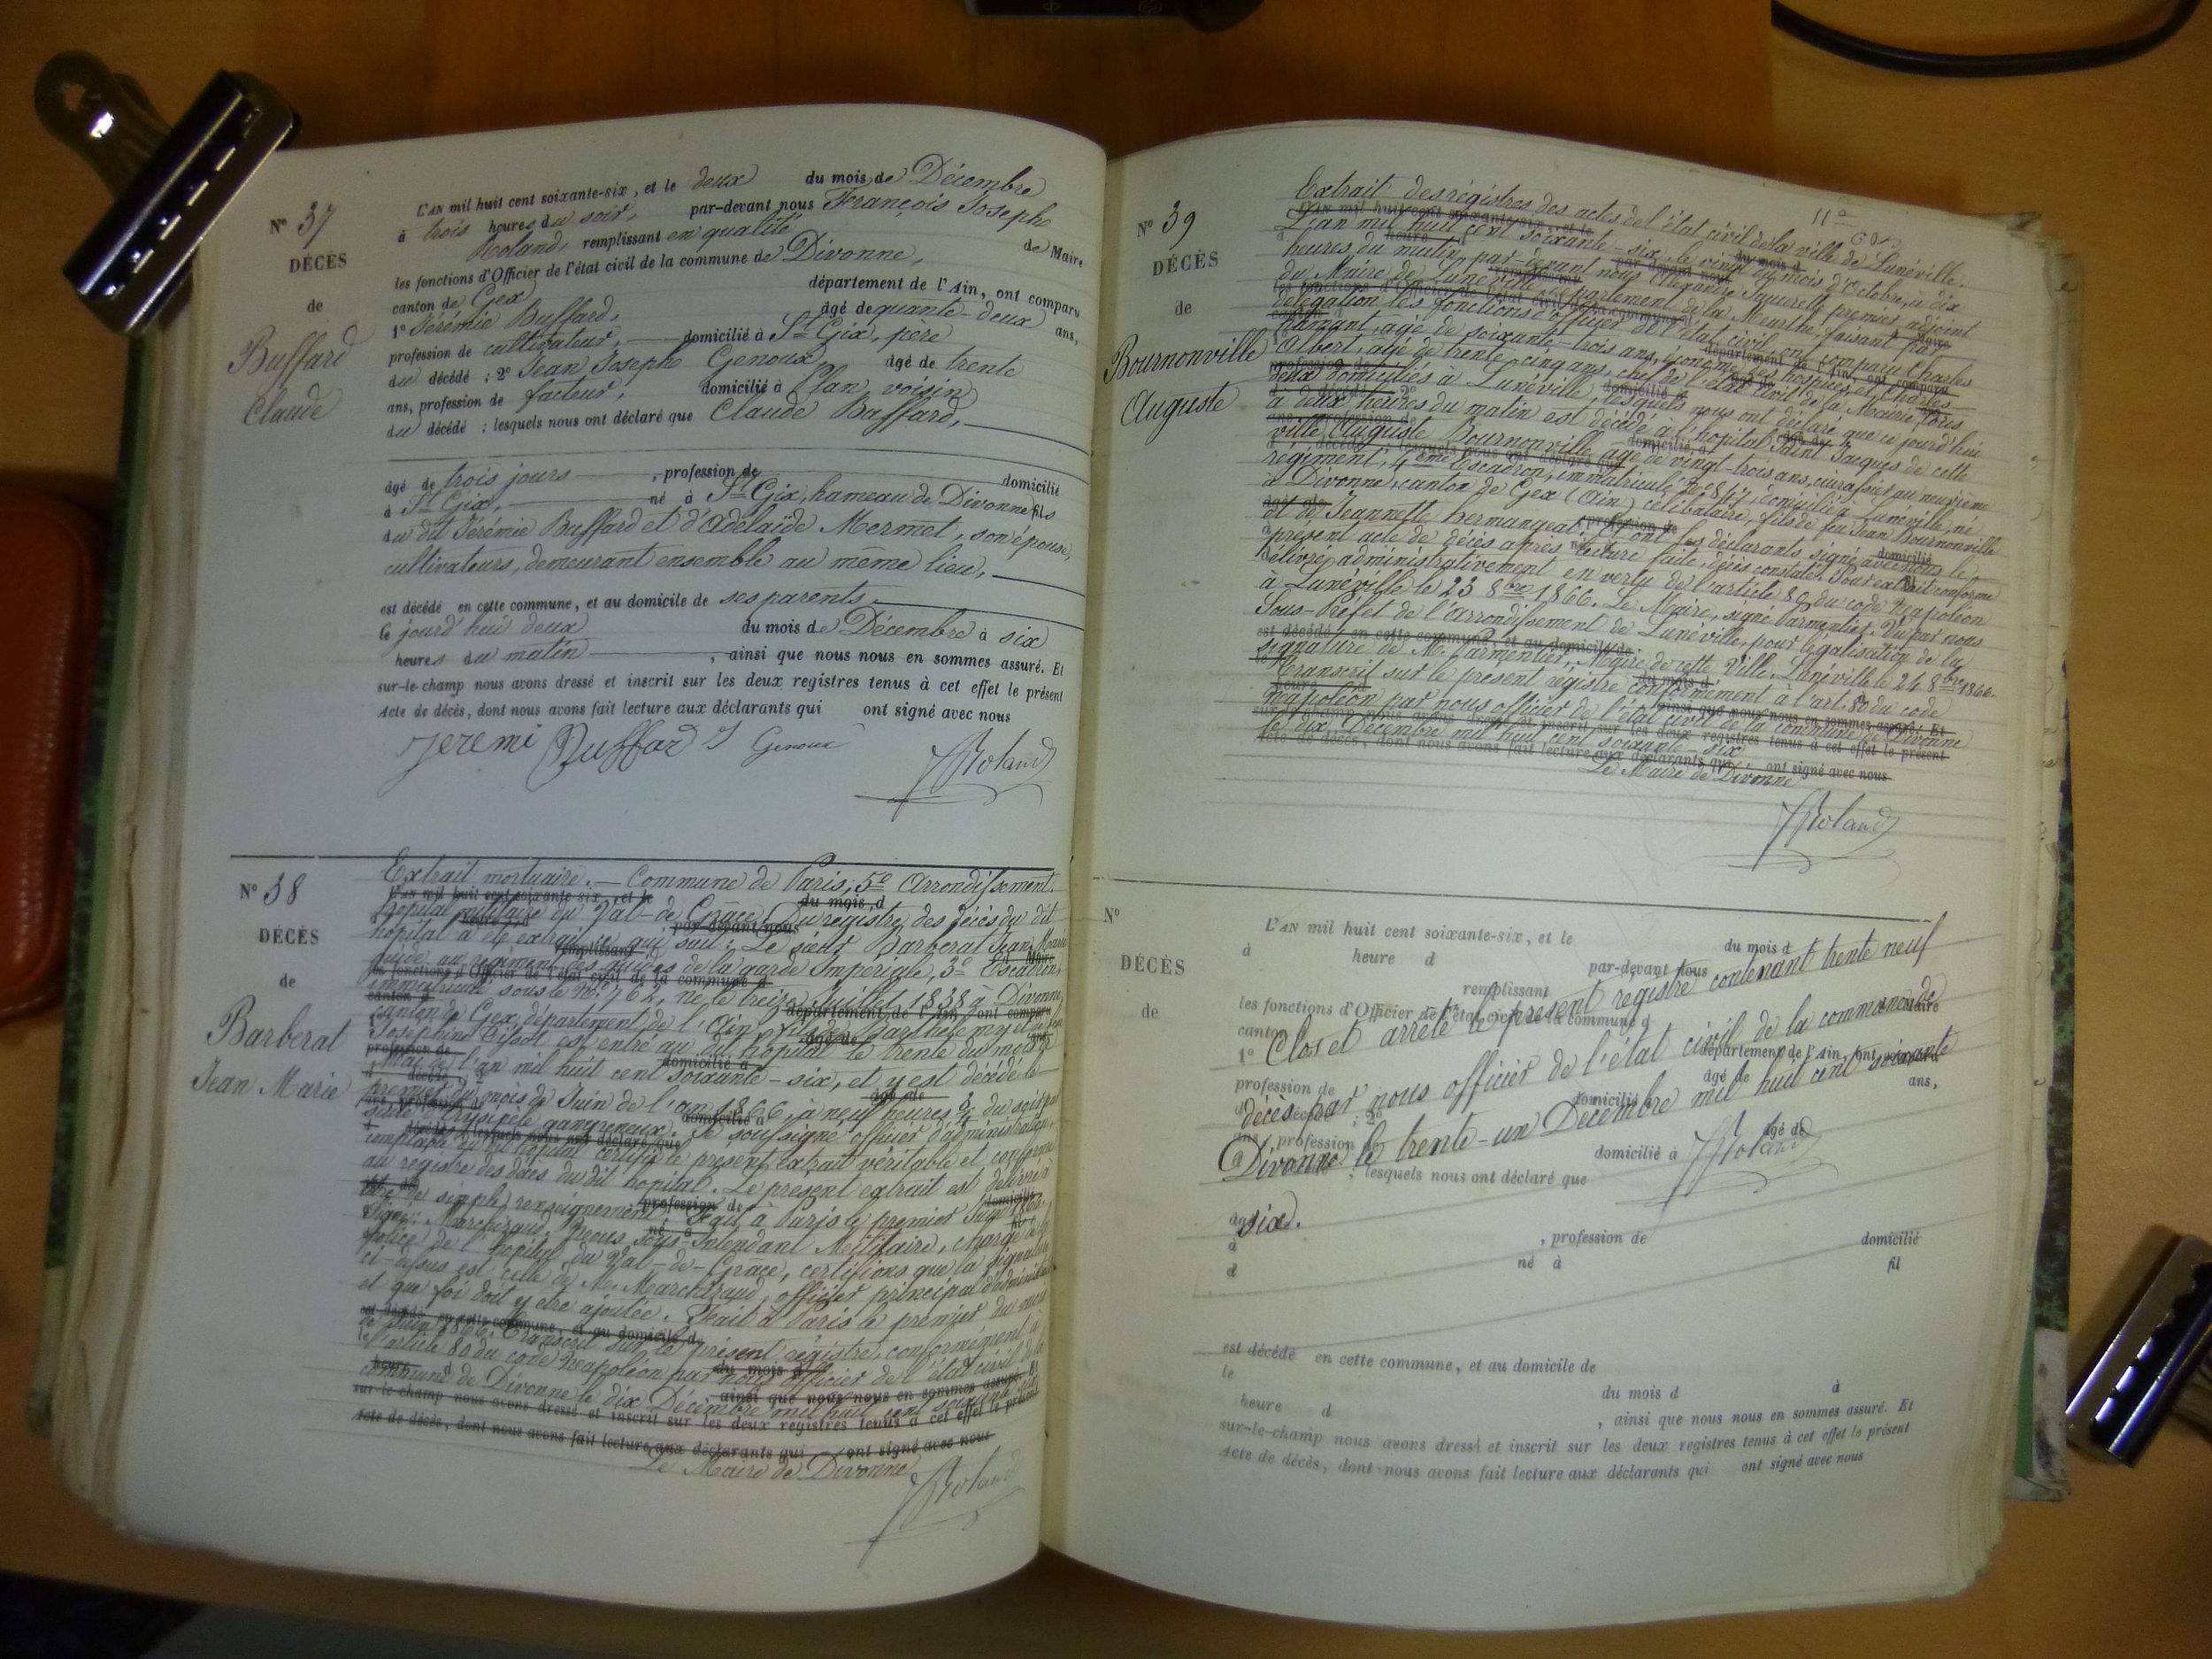 N° 37
DÉCÈS
de
Buffard
Claude
L'AN mil huit cent soixante-six, et le deux du mois de Décembre
à trois heures du soir, par-devant nous François Josephe
Roland, remplissant en qualité de Maire
les fonctions d'Officier de l'état civil de la commune de Divonne,
canton de Gex département de l'Ain, ont comparu
1° Jérémie Buffard, âgé de quante-deux ans,
profession de cultivateur, domicilié à St Gix, père
du décédé ; 2° Jean Josephe Genoux âgé de trente
ans, profession de facteur, domicilié à Plan, voisin
du décédé ; lesquels nous ont déclaré que Claude Buffard,
âgé de trois jours , profession de domicilié
à St Gix, né à St Gix, hameau de Divonne fils
du dit Jérémie Buffard et d'Adelaïde Mermet, son épouse,
cultivateurs, demeurant ensemble au même lieu,
est décédé en cette commune, et au domicile de ses parents
le jourd'hui deux du mois de Décembre à six
heures du matin , ainsi que nous nous en sommes assuré. Et
sur-le-champ nous avons dressé et inscrit sur les deux registres tenus à cet effet le présent
Acte de décès, dont nous avons fait lecture aux déclarants qui ont signé avec nous
Jeremi Buffard J Genoux
JRoland
N° 38
DÉCÈS
de
Barberat
Jean Marie
Extrait mortuaire. — Commune de Paris, 5e Arrondissement.
hôpital militaire du Val-de-Grâce. Du registre des décès du dit
hôpital a été extrait ce qui suit : Le sieur Barberat Jean Marie
guide au régiment des guides de la garde Impériale, 3e Escadron,
immatriculé sous le N° 762, né le treize Juillet 1838 à Divonne,
canton de Gex, département de l'Ain, fils de Barthélemy et de
Josephine Tissot est entré au dit hôpital le trente du mois de
Mai de l'an mil huit cent soixante-six, et y est décédé le
premier du mois de Juin de l'an 1866, à neuf heures 3/4 du soir par
suite d'érysipèle gangreneux. Je soussigné officier d'administration,
comptable du dit hôpital certifie le présent extrait véritable et conforme
au registre des décès du dit hôpital. Le présent extrait est délivré à
titre de simple renseignement. Fait à Paris le premier Juin 1866.
Signé : Marchiraud. Nous sous-Intendant Militaire, chargé de la
police de l'hôpital du Val-de-Grace, certifions que la signature
ci-dessus est celle de M. Marchiraud, officier principal d'administration
et que foi doit y être ajoutée. Fait à Paris le premier du mois
de Juin 1866. Transcrit sur le présent régistre, conformément à
l'article 80 du code Napoléon par nous officier de l'état civil de la
commune de Divonne le dix Décembre mil huit cent soixante-six
Le Maire de Divonne
JRoland
N° 39
DÉCÈS
de
Bournonville
Auguste
Extrait des régistres des actes de l'état civil de la ville de Lunéville.
L'an mil huit cent soixante-six, le vingt du mois d'Octobre, à dix
heures du matin, par devant nous Alexandre Saucerotte premier adjoint
du Maire de Lunéville département de la Meurthe, faisant par
délégation les fonctions d'officier de l'état civil ont comparu Charles
âgé de soixante-trois ans, économe des hospices, et Charles
Albert, âgé de trente cinq ans, chef de l'état civil de la Mairie tous
deux domiciliés à Lunéville, lesquels nous ont déclaré que ce jourd'hui
à deux heures du matin est décédé à l'hôpital Saint Jacques de cette
ville Auguste Bournonville, âgé de vingt-trois ans, cuirassier au neuvième
régiment, 4ème Escadron, immatriculé N° 847, domicilié à Lunéville, né
à Divonne, canton de Gex (Ain) célibataire, fils de feu Jean Bournonville
et de Jeannette hermangeat, Et ont les déclarants signé avec nous le
présent acte de décès après lecture faite, décès constaté. Pour extrait conforme
Délivré administrativement en vertu de l'article 80 du code Napoléon
à Lunéville le 23 8bre 1866. Le Maire, signé Parmentier. Vu par nous
Sous-Préfet de l'arrondissement de Lunéville, pour légalisation de la
signature de M. Parmentier, Maire de cette Ville. Lunéville le 24 8bre 1866.
Transcrit sur le présent registre conformément à l'art. 80 du code
Napoléon par nous officier de l'état civil de la commune de Divonne
le dix Décembre mil huit cent soixante-six
Le Maire de Divonne
JRoland
N°
DÉCÈS
de
L'AN mil huit cent soixante-six, et le du mois d
à heure d par-devant nous
remplissant
les fonctions d'Officier de l'état civil de la commune d
Clos et arrêté le présent registre contenant trente neuf
décès par nous officier de l'état civil de la commune de
Divonne le trente-un Décembre mil huit cent soixante
six.
JRoland
domicilié à
lesquels nous ont déclaré que
, profession de domicilié
né à fil
est décédé en cette commune, et au domicile de
le du mois d à
heure d , ainsi que nous nous en sommes assuré. Et
sur-le-champ nous avons dressé et inscrit sur les deux registres tenus à cet effet le présent
Acte de décès, dont nous avons fait lecture aux déclarants qui ont signé avec nous